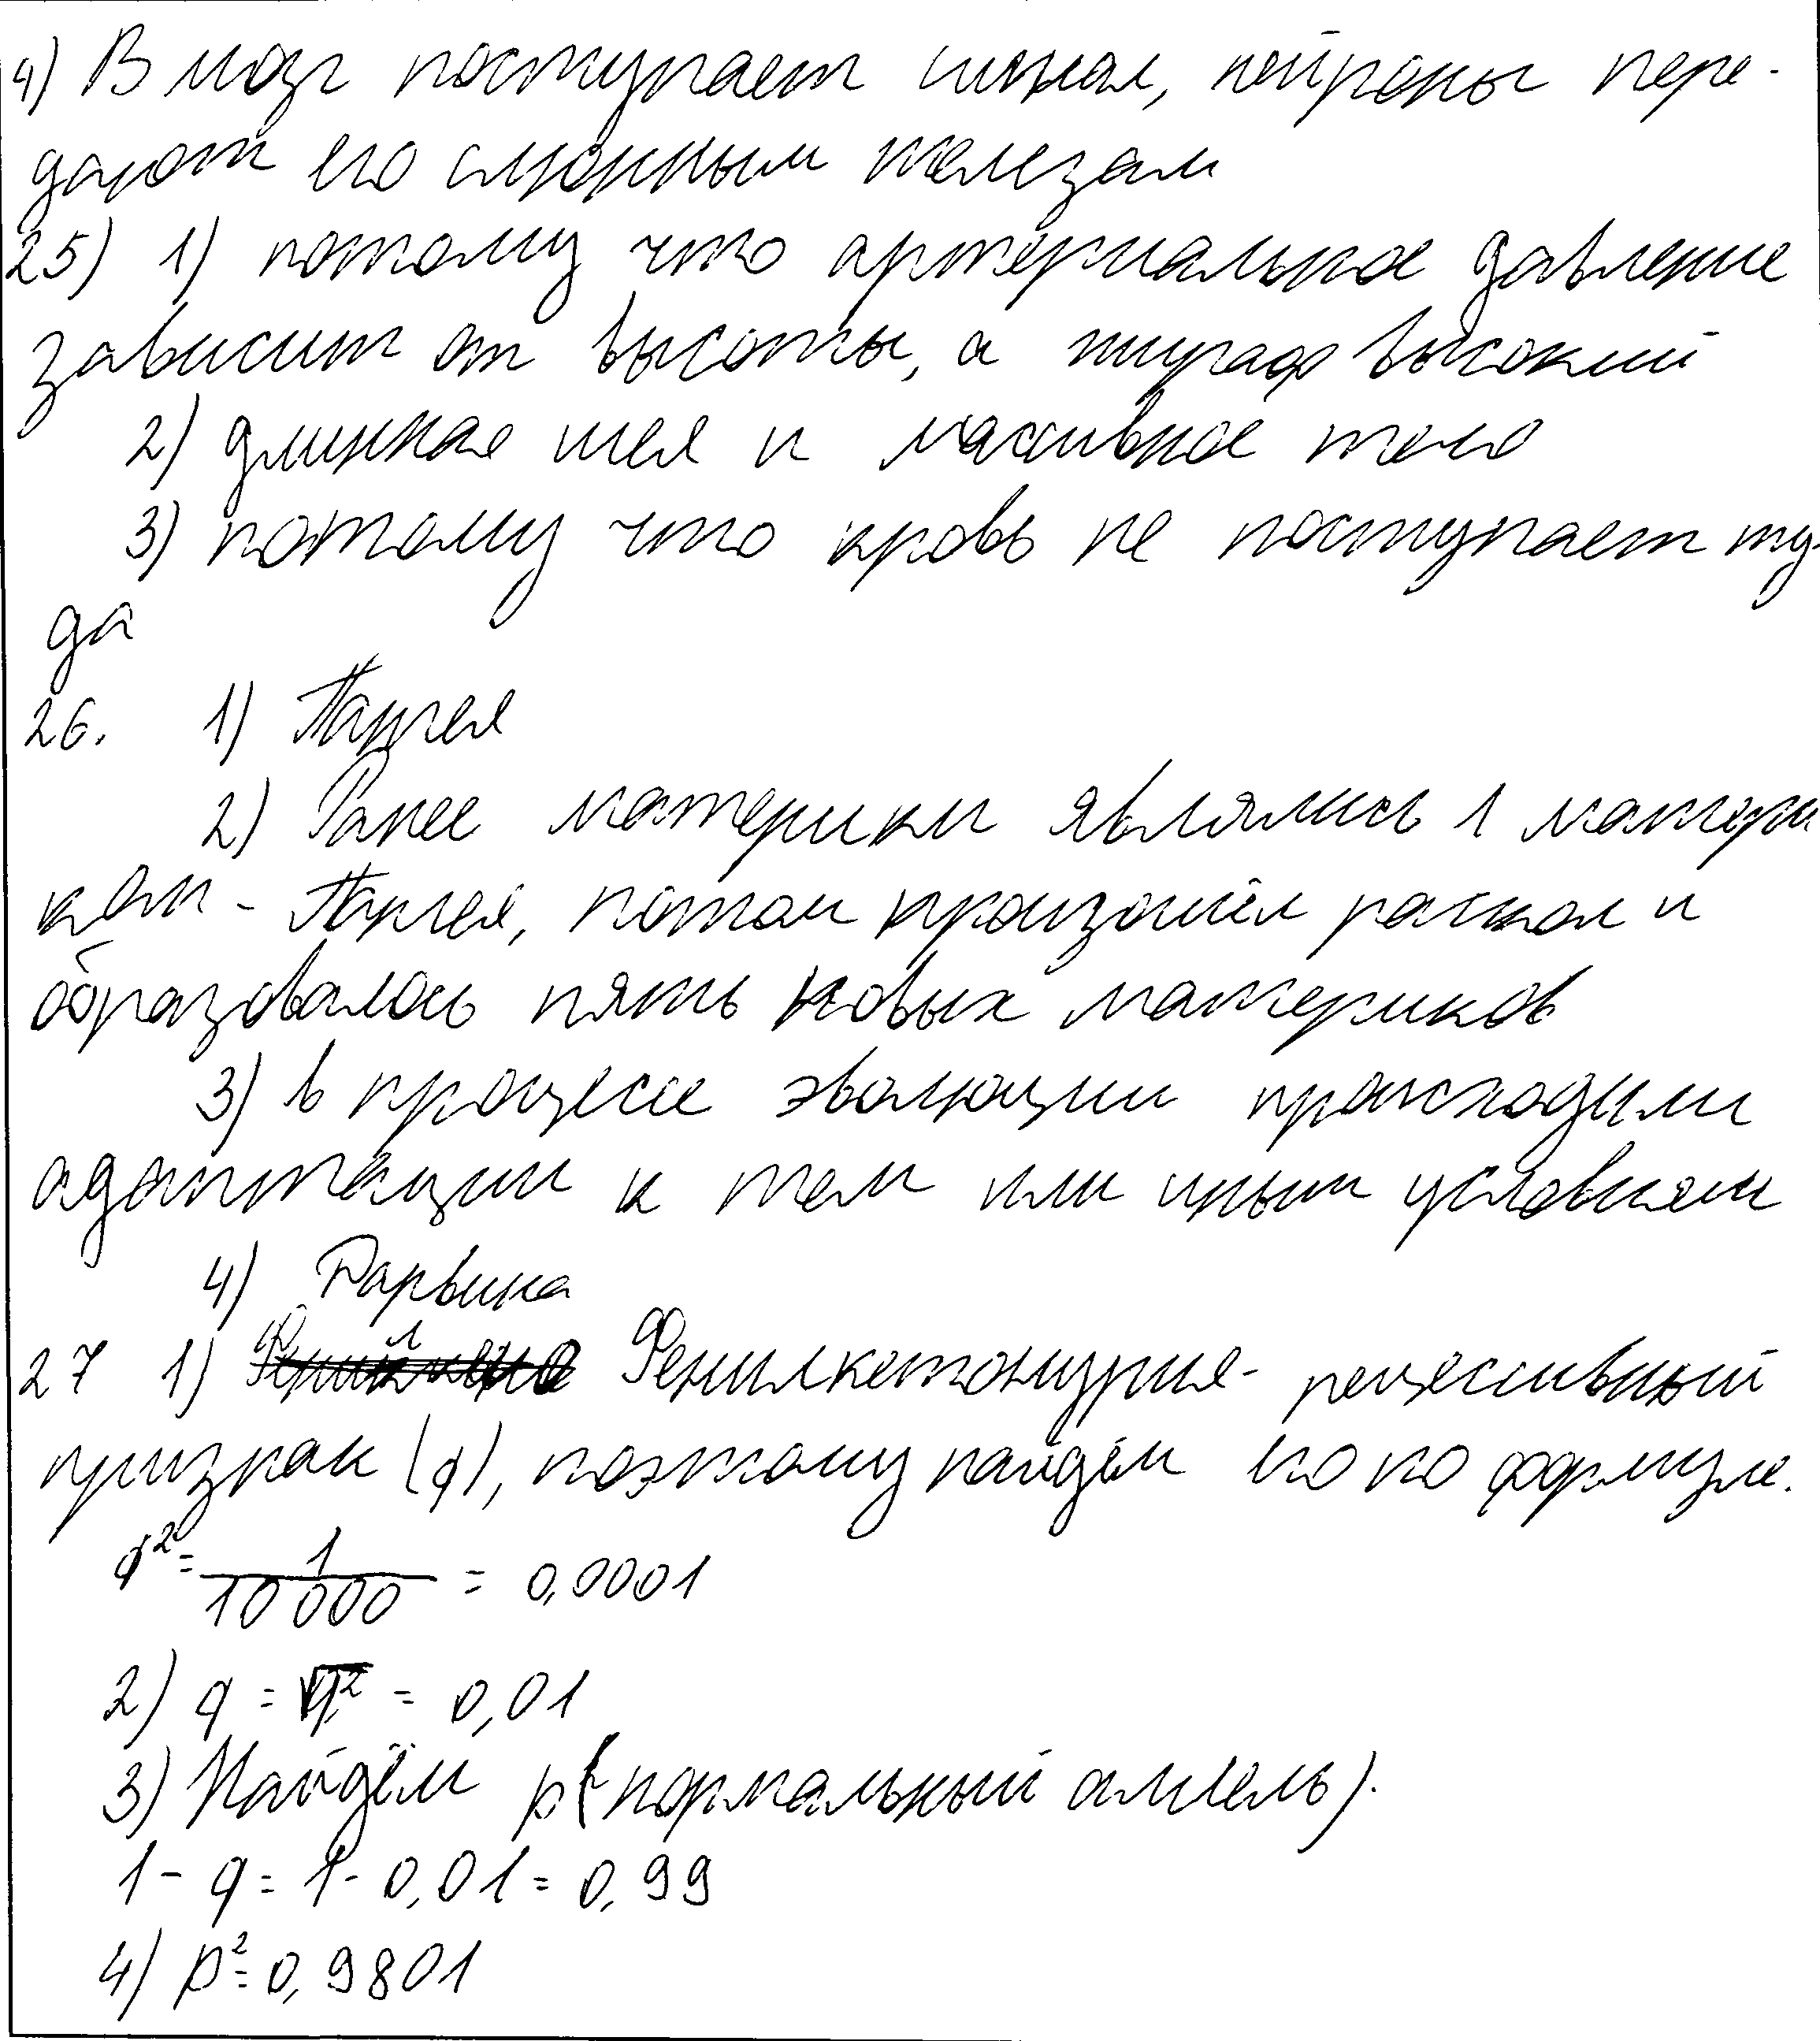 4) В мозг поступает сигнал, нейроны пере-
дают его слюнным железам
25) 1) потому что артериальное давление
зависит от высоты, а жираф высокий
2) длинная шея и массивное тело
3) потому что кровь не поступает ту-
да
26. 1) Пангея
2) Ранее материки являлись 1 матери
ком - Пангея, потом произошёл раскол и
образовалось пять новых материков
3) в процессе эволюции происходили
адаптации к тем или иным условиям
4) Дарвина
27 1) Фенилкетонурия - рецессивный
признак (q), поэтому найдём его по формуле.
q² = 1/10 000 = 0,0001
2) q = √q² = 0,01
3) Найдём p (нормальный аллель).
1 - q = 1 - 0,01 = 0,99
4) p² = 0,9801